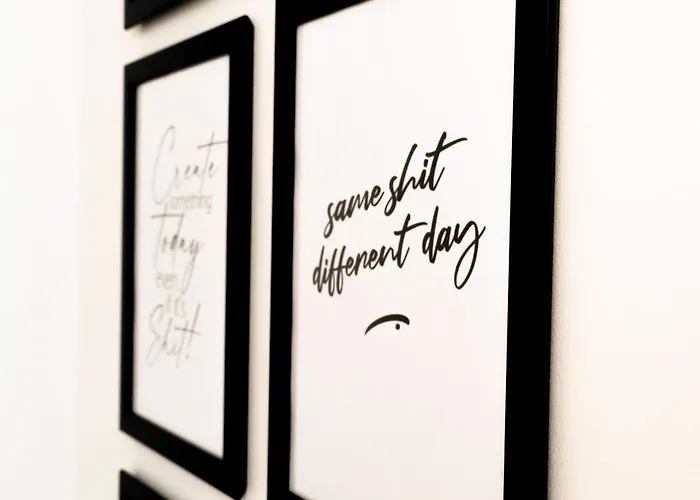 Create
something
Today
even
if it's
Shit!
same shit
different day